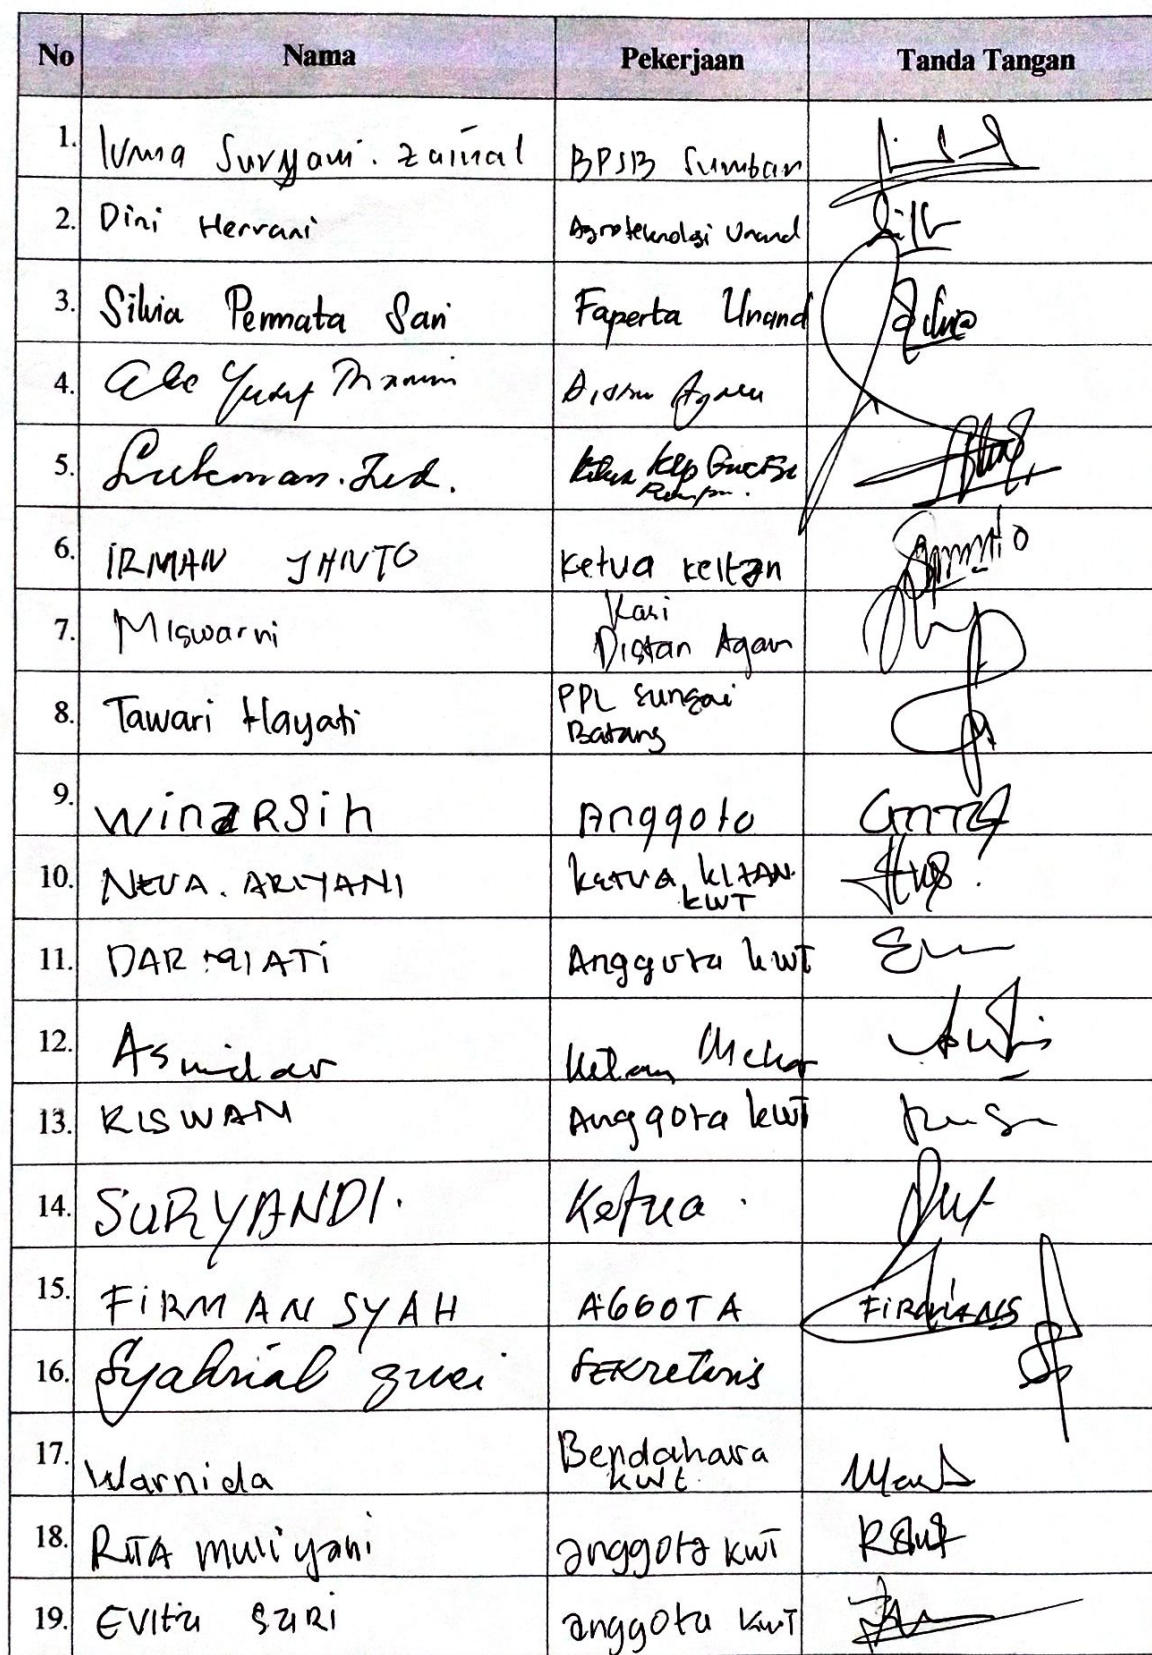 No Nama Pekerjaan Tanda Tangan
1. Suryani. Zainal BPSB Sumbar
2. Dini Herrani Agroteknologi Unand
3. Silvia Permata Sari Faperta Unand Silvia
4. Yusuf
5. Lukman. Zed. Ketua Klp
6. IRMAN JANTO Ketua Keltan
7. Miswarni Kasi
Distan Agam
8. Tawari Hayati PPL Sungai
Batang
9. WinaRSih Anggota
10. NEVA. ARIYANI Ketua KLTAN
KWT
11. DAR Anggota KWT
12. Asnidar Keltan Mekar
13. RISWAN Anggota KWT
14. SURYANDI. Ketua.
15. FiRMANSYAH AGGOTA FIRMANS
16. Syahrial SEKretaris
17. Warnida Bendahara
KWT.
18. RITA muliyani anggota KWT
19. EVita SARi anggota KWT